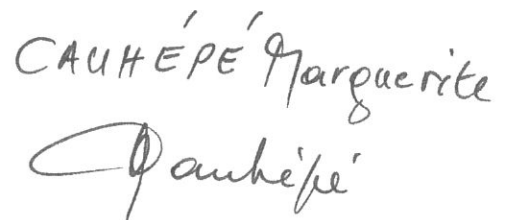 CAUHÉPÉ Marguerite
Cauhépé